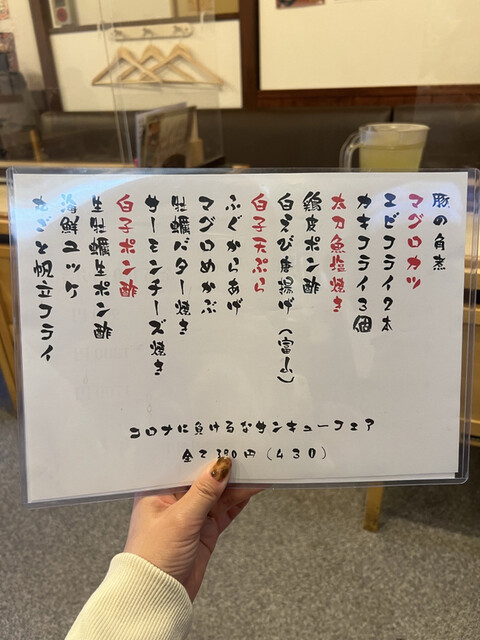 豚の角煮
マグロカツ
エビフライ2本
カキフライ3個
太刀魚塩焼き
鶏皮ポン酢
白えび唐揚げ(富山)
白子天ぷら
ふぐからあげ
マグロめかぶ
牡蠣バター焼き
サーモンチーズ焼き
白子ポン酢
生牡蠣生ポン酢
海鮮ユッケ
丸ごと帆立フライ
コロナに負けるなサンキューフェア
全て390円(430)